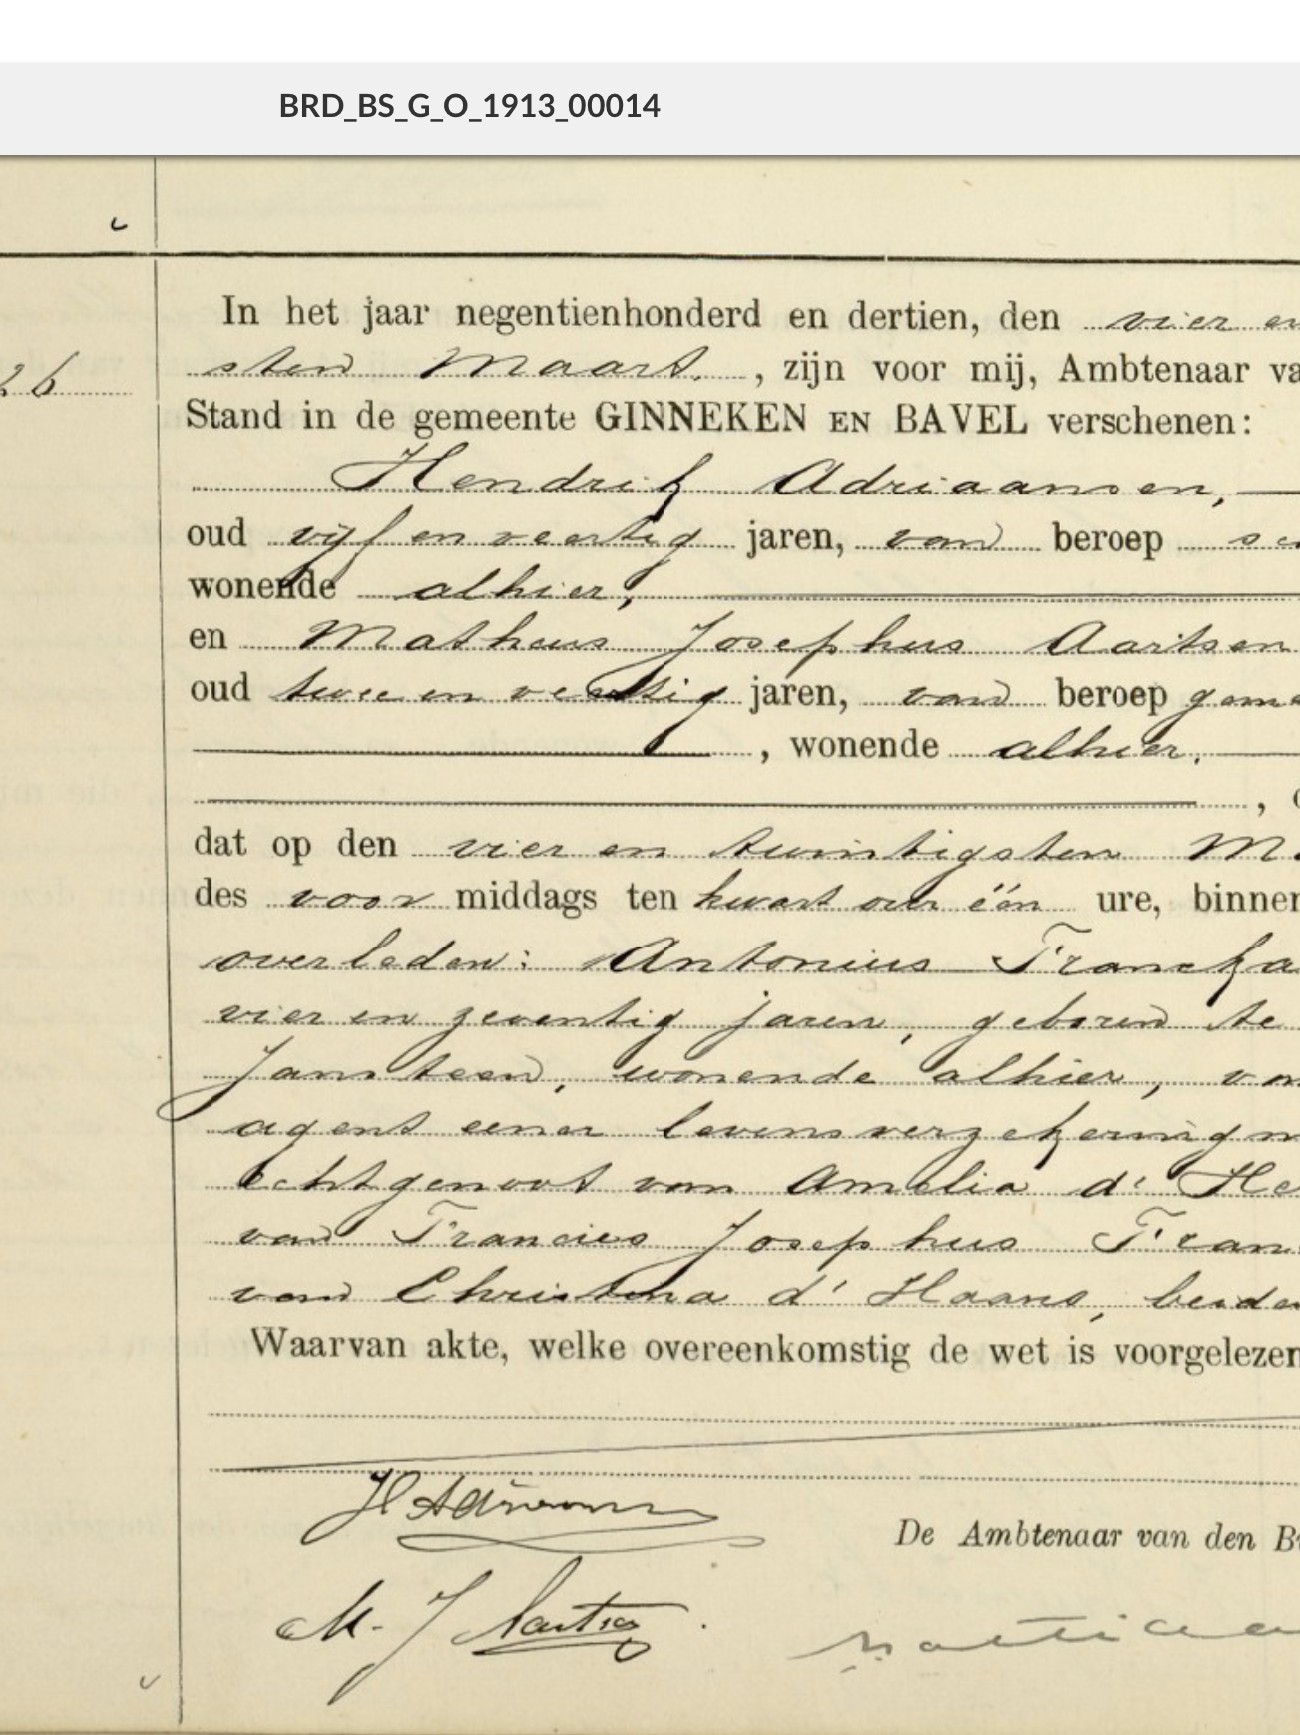 BRD_BS_G_O_1913_00014
In het jaar negentienhonderd en dertien, den vier en
26
sten Maart. , zijn voor mij, Ambtenaar va
Stand in de gemeente GINNEKEN EN BAVEL verschenen:
Hendrik Adriaansen,
oud vijf en veertig jaren, van beroep
wonende alhier,
en Matheus Josephus Aartsen
oud twee en veertig jaren, van beroep geme
, wonende alhier,
,
dat op den vier en twintigsten M
des voor middags ten kwart over één ure, binnen
overleden: Antonius Francka
vier en zeventig jaren, geboren te
Jansteen, wonende alhier, van
agent eener levensverzekeringm
echtgenoot van Amelia d' He
van Francies Josephus Fran
van Christina d' Haans, beide
Waarvan akte, welke overeenkomstig de wet is voorgelezen
H Adriaansen
De Ambtenaar van den Bu
M. J Aartsen